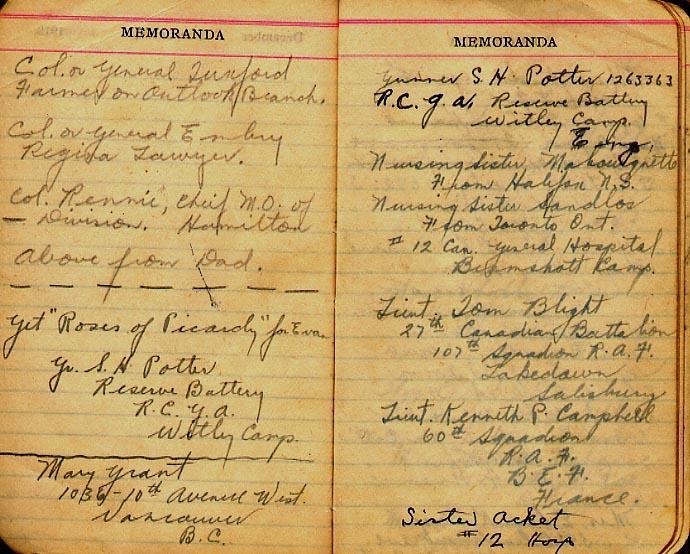 MEMORANDA
Col. or General Tuxford
Farmer on Outlook Branch.
Col. or General Embury
Regina Lawyer.
Col. Rennie, Chief M.O. of
– Division. Hamilton
Above from Dad.
Get "Roses of Picardy" for Eva
Gr. S. H. Potter
Reserve Battery
R. C. G. A.
Witley Camp.
Mary Grant
1036-10th Avenue West.
Vancouver
B.C.
MEMORANDA
Gunner S. H. Potter 1263363
R.C.G.A. Reserve Battery
Witley Camp.
Eng.
Nursing Sister
From Halifax N.S.
Nursing Sister Sandlos
From Toronto Ont.
# 12 Can. General Hospital
Bramshott Camp.
Lieut. Tom Blight
27th Canadian Battalion
107th Squadron R.A.F.
Lakedown
Salisbury
Lieut. Kenneth P. Campbell
60th Squadron
R.A.F.
B.E.F.
France.
Sister Acket
# 12 Hosp